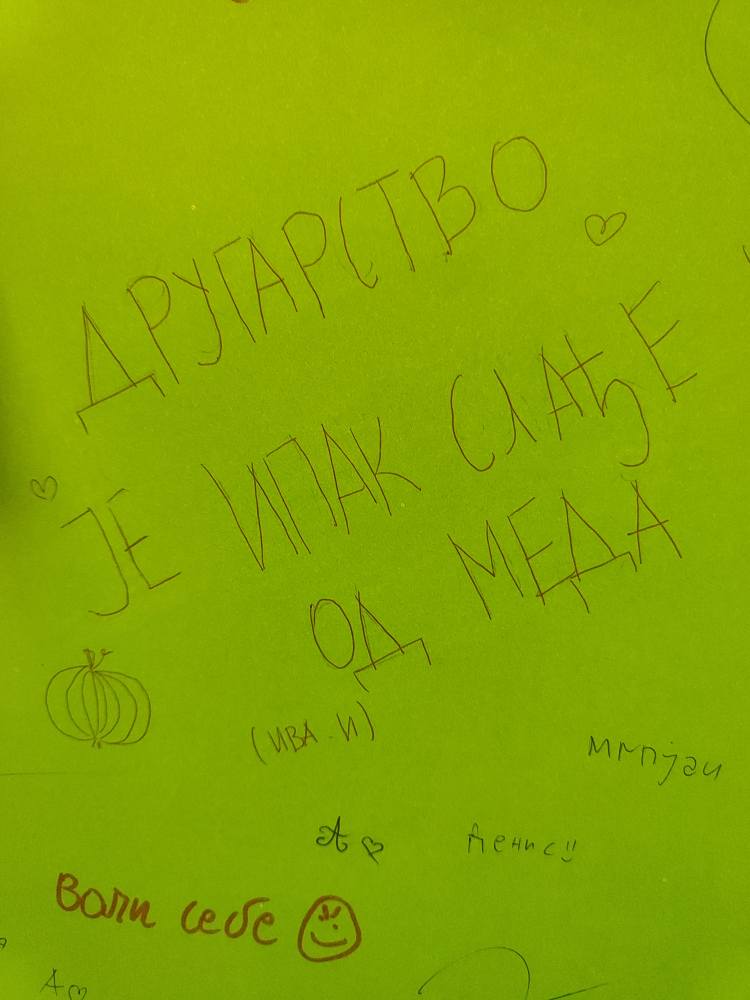 ДРУГАРСТВО
ЈЕ ИПАК СЛАЂЕ
ОД МЕДА
(ИВА. И)
А
Денис!!
Воли себе
А